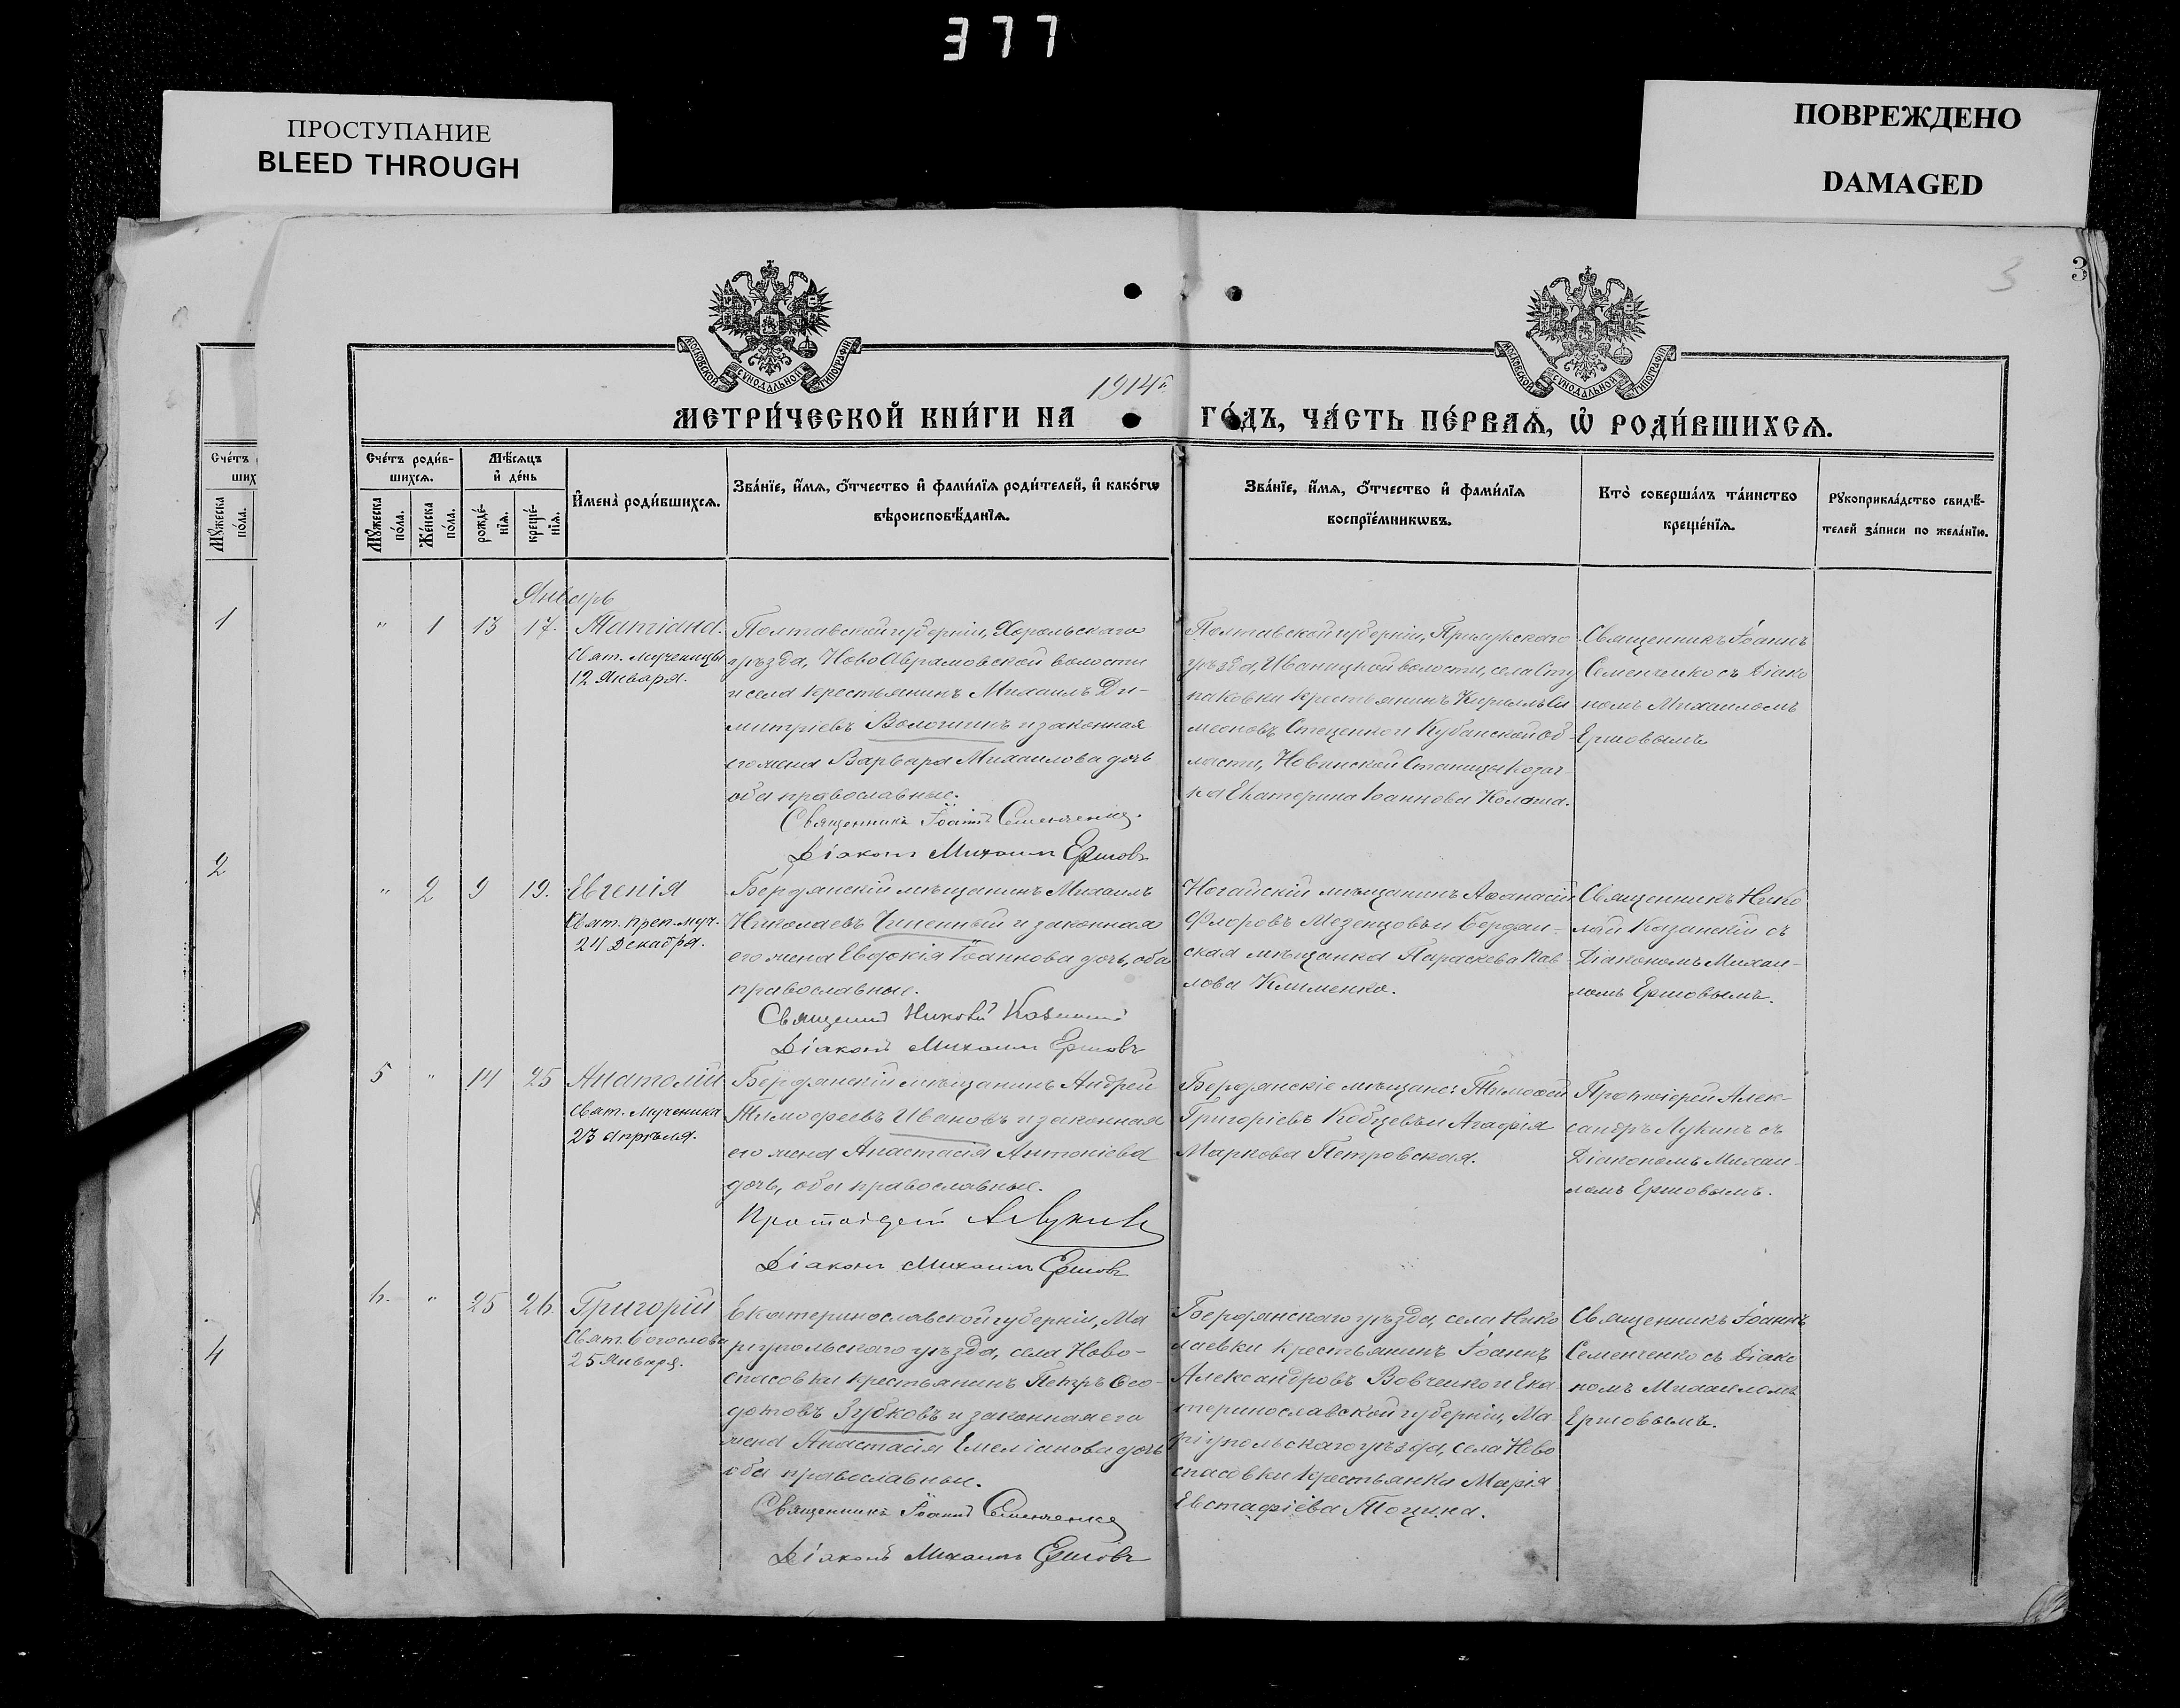 377
ПРОСТУПАНИЕ
BLEED THROUGH
ПОВРЕЖДЕНО
DAMAGED
3
3
МОСКОВСКОЙ СѴНОДАЛЬНОЙ ТИПОГРАФІИ
МОСКОВСКОЙ СѴНОДАЛЬНОЙ ТИПОГРАФІИ
1914 г.
МЕТРИ́ЧЕСКОЙ КНИ́ГИ НА ГО́ДЪ, ЧА́СТЬ ПЕ́РВАѦ, Ѡ҆ РОДИ́ВШИХСѦ.
Сче́тъ
ших
Мꙋ́жеска по́ла.
1
2
4
Сче́тъ роди́в-
шихсѧ.
Мꙋ́жеска по́ла.
Же́нска по́ла.
Мѣ́сѧцъ
и҆ де́нь
рожде́-
нїѧ.
креще́-
нїѧ.
И҆мена̀ роди́вшихсѧ.
Зва́нїе, и҆́мѧ, ѻ҆́тчество и҆ фами́лїѧ роди́телей, и҆ како́гѡ
вѣроисповѣ́данїѧ.
Зва́нїе, и҆́мѧ, ѻ҆́тчество и҆ фами́лїѧ
воспрїе́мникѡвъ.
Кто̀ соверша́лъ та́инство
креще́нїѧ.
Рꙋкоприкла́дство свидѣ́-
телей за́писи по жела́нїю.
Январь
" 1 13 17. Татіана.
Свят. мученицы
12 Января.
Полтавской губерніи, Хорольскаго
уѣзда, Ново Аврамовской волости
и села крестьянинъ Михаилъ Ди-
митріевъ Волошинъ и законная
его жена Варвара Михаилова дочь
оба православные.
Священникъ Іоаннъ Семенченко.
Діаконъ Михаилъ Ершовъ
Полтавской губерніи, Прилукскаго
уѣзда, Иваницкой волости, села Сту
паковки крестьянинъ Кириллъ Си
меоновъ Стеценко и Кубанской об-
ласти, Станицы козач-
ка Екатерина Іоаннова
Священникъ Іоаннъ
Семенченко съ Діако
номъ Михаиломъ
Ершовымъ
" 2 9 19. Евгенія
Свят. преп. муч.
24 Декабря.
Бердянскій мѣщанинъ Михаилъ
Николаевъ и законная
его жена Евдокія Іоаннова дочь, оба
православные.
Священникъ Николай Казанскій
Діаконъ Михаилъ Ершовъ
Ногайскій мѣщанинъ Аѳанасій
Флоровъ Мезенцовъ и Бердян-
ская мѣщанка Параскева Пав
лова Клименко.
Священникъ Нико
лай Казанскій съ
Діакономъ Михаи-
ломъ Ершовымъ.
5 " 14 25 Анатолій
Свят. Мученика
23 апрѣля.
Бердянскій мѣщанинъ Андрей
Тимофеевъ Ивановъ и законная
его жена Анастасія Антоніева
дочь, оба православные.
Протоіерей А Лукинъ
Діаконъ Михаилъ Ершовъ
Бердянскіе мѣщане: Тимоѳей
Григоріевъ Кобцевъ и Агафія
Маркова Петровская.
Протоіерей Алек-
сандръ Лукинъ съ
Діакономъ Михаи-
ломъ Ершовымъ.
6. " 25 26. Григорій
Свят. Богослова
25 Января.
Екатеринославской губерніи, Ма
ріупольскаго уѣзда, села Ново-
спасовки крестьянинъ Петръ Ѳео-
дотовъ Зубковъ и законная его
жена Анастасія Емеліанова дочь
оба православные.
Священникъ Іоаннъ Семенченко
Діаконъ Михаилъ Ершовъ
Бердянскаго уѣзда, села Нико
лаевки крестьянинъ Іоаннъ
Александровъ Вовченко и Ека-
теринославской губерніи, Ма-
ріупольскаго уѣзда, села Ново
спасовки крестьянка Марія
Евстафіева Тоцина.
Священникъ Іоаннъ
Семенченко съ Діако
номъ Михаиломъ
Ершовымъ.